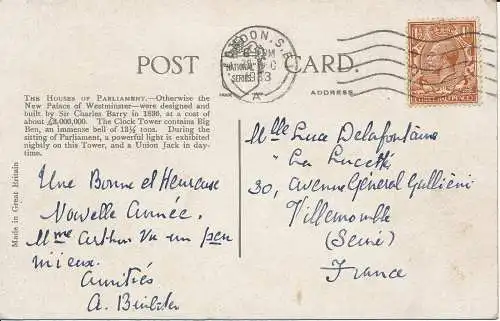 POST CARD.
ADDRESS.
LONDON, S.E.
1933
A
THE HOUSES OF PARLIAMENT.—Otherwise the
New Palace of Westminster—were designed and
built by Sir Charles Barry in 1836, at a cost of
about £3,000,000. The Clock Tower contains Big
Ben, an immense bell of 13½ tons. During the
sitting of Parliament, a powerful light is exhibited
nightly on this Tower, and a Union Jack in day-
time.
Made in Great Britain
Une Bonne et Heureuse
Nouvelle Année.
Mme Arthur va un peu
mieux.
Amitiés
A.
Mlle Luce Delafontaine
"La Lucette
30, avenue Général Galliéni
Villemomble
(Seine)
France